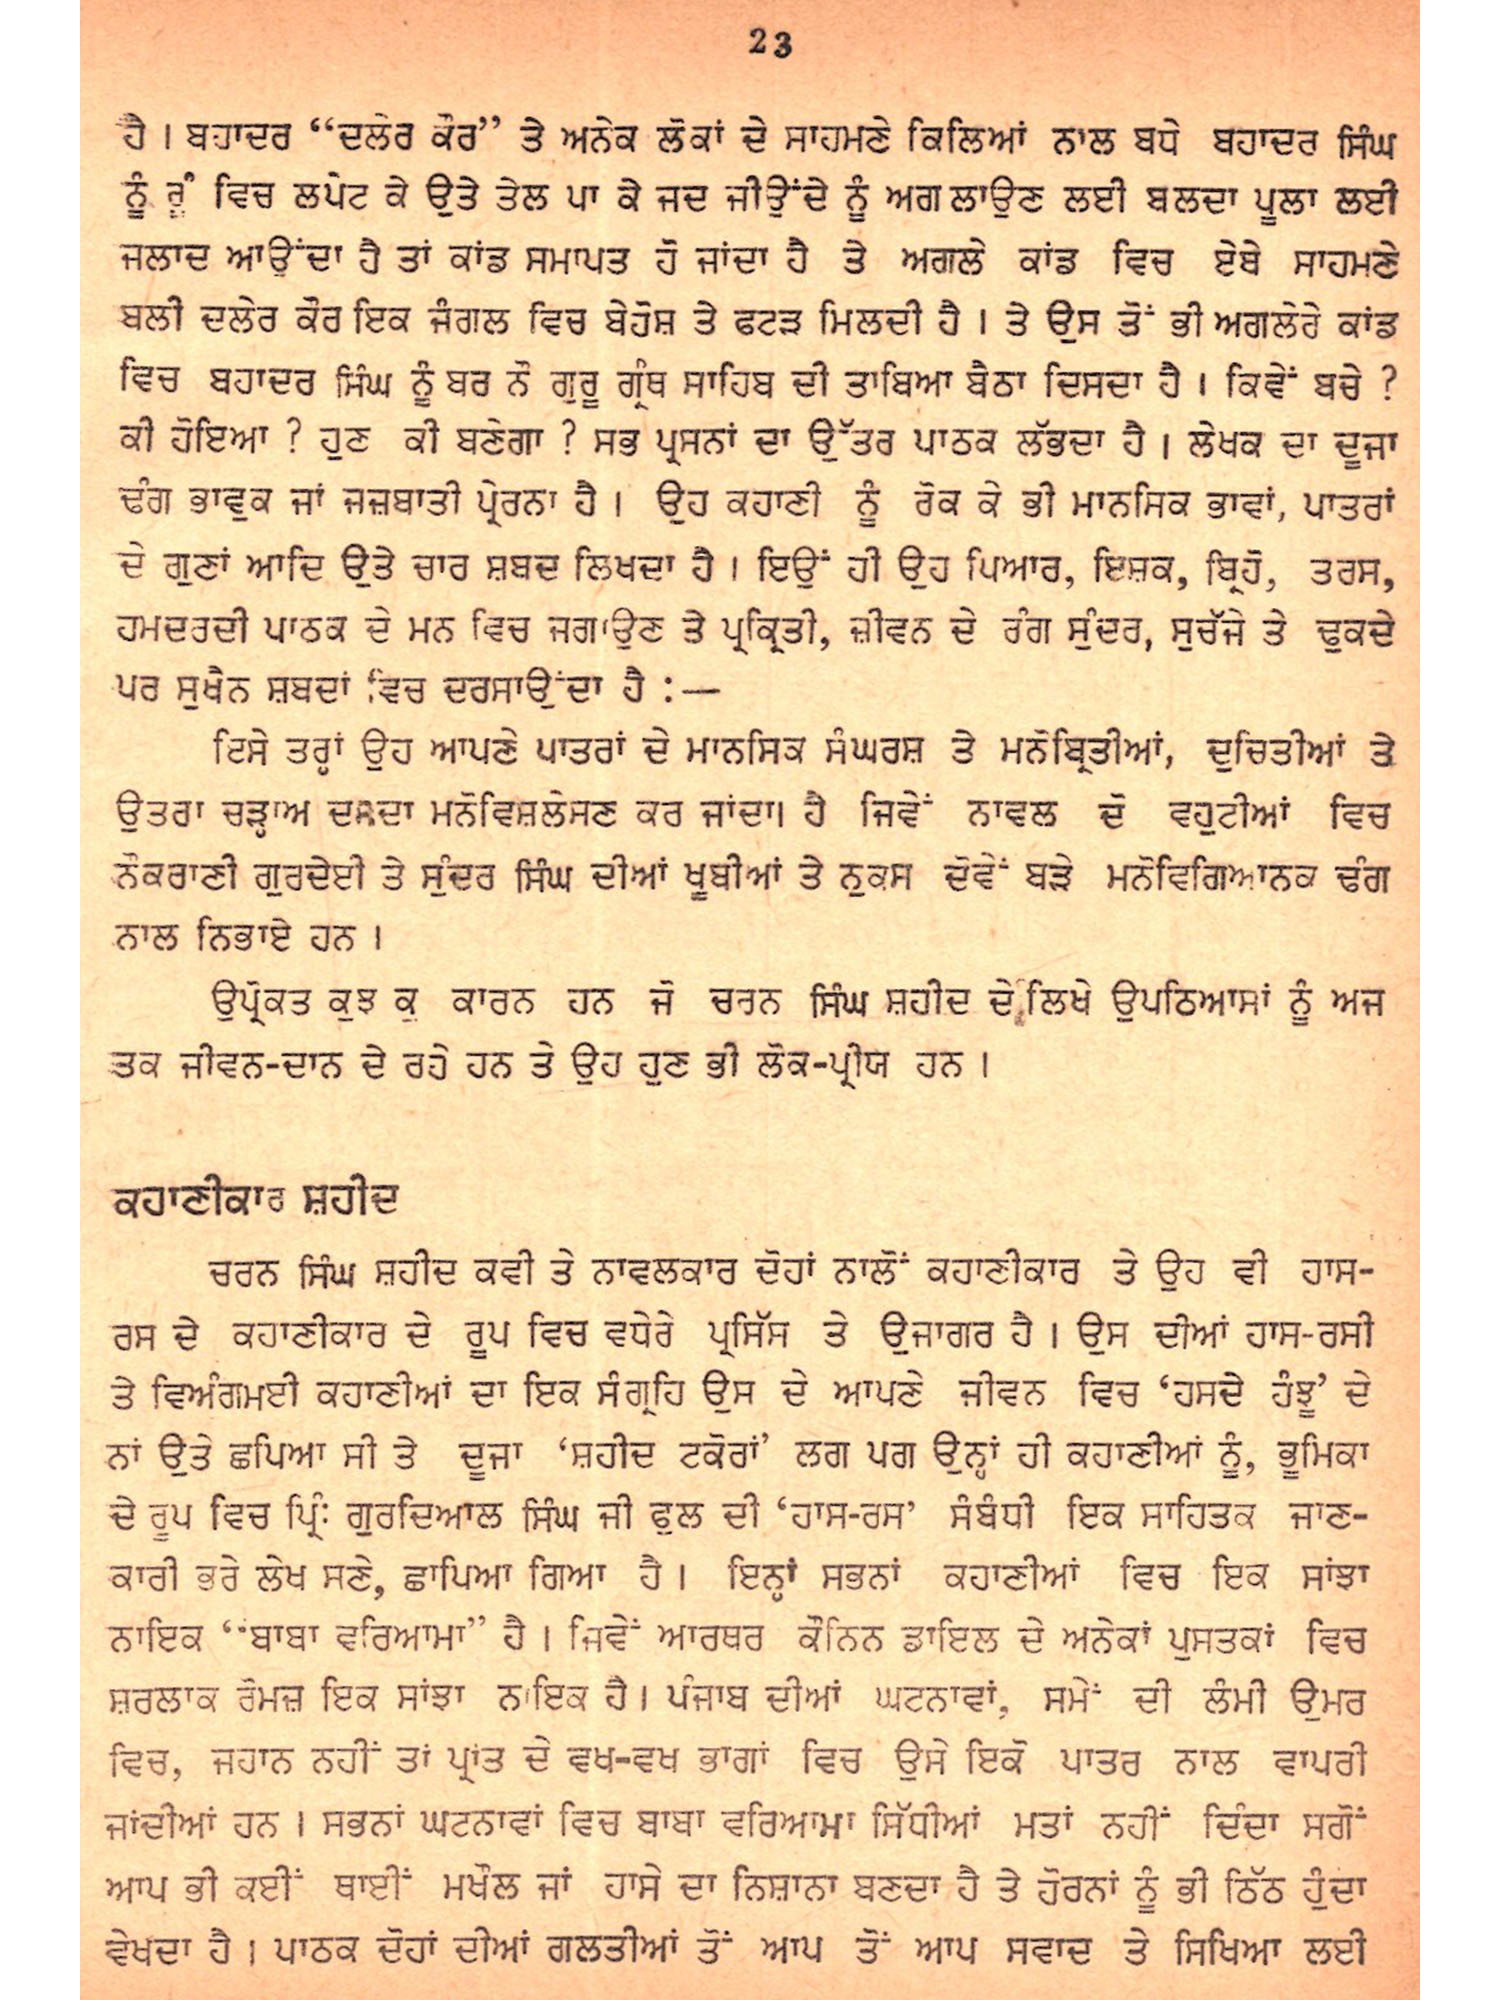 23
ਹੈ । ਬਹਾਦਰ “ਦਲੇਰ ਕੌਰ” ਤੇ ਅਨੇਕ ਲੋਕਾਂ ਦੇ ਸਾਹਮਣੇ ਕਿਲਿਆਂ ਨਾਲ ਬਧੇ ਬਹਾਦਰ ਸਿੰਘ
ਨੂੰ ਰੂੰ ਵਿਚ ਲਪੇਟ ਕੇ ਉਤੇ ਤੇਲ ਪਾ ਕੇ ਜਦ ਜੀਉਂਦੇ ਨੂੰ ਅਗ ਲਾਉਣ ਲਈ ਬਲਦਾ ਪੂਲਾ ਲਈ
ਜਲਾਦ ਆਉਂਦਾ ਹੈ ਤਾਂ ਕਾਂਡ ਸਮਾਪਤ ਹੋ ਜਾਂਦਾ ਹੈ ਤੇ ਅਗਲੇ ਕਾਂਡ ਵਿਚ ਏਥੇ ਸਾਹਮਣੇ
ਬਲੀ ਦਲੇਰ ਕੌਰ ਇਕ ਜੰਗਲ ਵਿਚ ਬੇਹੋਸ਼ ਤੇ ਫਟੜ ਮਿਲਦੀ ਹੈ । ਤੇ ਉਸ ਤੋਂ ਭੀ ਅਗਲੇਰੇ ਕਾਂਡ
ਵਿਚ ਬਹਾਦਰ ਸਿੰਘ ਨੂੰ ਬਰ ਨੌ ਗੁਰੂ ਗ੍ਰੰਥ ਸਾਹਿਬ ਦੀ ਤਾਬਿਆ ਬੈਠਾ ਦਿਸਦਾ ਹੈ । ਕਿਵੇਂ ਬਚੇ ?
ਕੀ ਹੋਇਆ ? ਹੁਣ ਕੀ ਬਣੇਗਾ ? ਸਭ ਪ੍ਰਸਨਾਂ ਦਾ ਉੱਤਰ ਪਾਠਕ ਲੱਭਦਾ ਹੈ । ਲੇਖਕ ਦਾ ਦੂਜਾ
ਢੰਗ ਭਾਵੁਕ ਜਾਂ ਜਜ਼ਬਾਤੀ ਪ੍ਰੇਰਨਾ ਹੈ । ਉਹ ਕਹਾਣੀ ਨੂੰ ਰੋਕ ਕੇ ਭੀ ਮਾਨਸਿਕ ਭਾਵਾਂ, ਪਾਤਰਾਂ
ਦੇ ਗੁਣਾਂ ਆਦਿ ਉਤੇ ਚਾਰ ਸ਼ਬਦ ਲਿਖਦਾ ਹੈ । ਇਉਂ ਹੀ ਉਹ ਪਿਆਰ, ਇਸ਼ਕ, ਬ੍ਰਿਹੋ, ਤਰਸ,
ਹਮਦਰਦੀ ਪਾਠਕ ਦੇ ਮਨ ਵਿਚ ਜਗਾਉਣ ਤੇ ਪ੍ਰਕ੍ਰਿਤੀ, ਜ਼ੀਵਨ ਦੇ ਰੰਗ ਸੁੰਦਰ, ਸੁਚੱਜੇ ਤੇ ਢੁਕਦੇ
ਪਰ ਸੁਖੈਨ ਸ਼ਬਦਾਂ ਵਿਚ ਦਰਸਾਉਂਦਾ ਹੈ :—
ਇਸੇ ਤਰ੍ਹਾਂ ਉਹ ਆਪਣੇ ਪਾਤਰਾਂ ਦੇ ਮਾਨਸਿਕ ਸੰਘਰਸ਼ ਤੇ ਮਨੋਬ੍ਰਿਤੀਆਂ, ਦੁਚਿਤੀਆਂ ਤੇ
ਉਤਰਾ ਚੜ੍ਹਾਅ ਦਸਦਾ ਮਨੋਵਿਸ਼ਲੇਸਣ ਕਰ ਜਾਂਦਾ। ਹੈ ਜਿਵੇਂ ਨਾਵਲ ਦੋ ਵਹੁਟੀਆਂ ਵਿਚ
ਨੌਕਰਾਣੀ ਗੁਰਦੇਈ ਤੇ ਸੁੰਦਰ ਸਿੰਘ ਦੀਆਂ ਖੂਬੀਆਂ ਤੇ ਨੁਕਸ ਦੋਵੇਂ ਬੜੇ ਮਨੋਵਿਗਿਆਨਕ ਢੰਗ
ਨਾਲ ਨਿਭਾਏ ਹਨ ।
ਉਪ੍ਰੋਕਤ ਕੁਝ ਕੁ ਕਾਰਨ ਹਨ ਜੋ ਚਰਨ ਸਿੰਘ ਸ਼ਹੀਦ ਦੇ ਲਿਖੇ ਉਪਠਿਆਸਾਂ ਨੂੰ ਅਜ
ਤਕ ਜੀਵਨ-ਦਾਨ ਦੇ ਰਹੇ ਹਨ ਤੇ ਉਹ ਹੁਣ ਭੀ ਲੋਕ-ਪ੍ਰੀਯ ਹਨ ।
ਕਹਾਣੀਕਾਰ ਸ਼ਹੀਦ
ਚਰਨ ਸਿੰਘ ਸ਼ਹੀਦ ਕਵੀ ਤੇ ਨਾਵਲਕਾਰ ਦੋਹਾਂ ਨਾਲੋਂ ਕਹਾਣੀਕਾਰ ਤੇ ਉਹ ਵੀ ਹਾਸ-
ਰਸ ਦੇ ਕਹਾਣੀਕਾਰ ਦੇ ਰੂਪ ਵਿਚ ਵਧੇਰੇ ਪ੍ਰਸਿੱਸ ਤੇ ਉਜਾਗਰ ਹੈ । ਉਸ ਦੀਆਂ ਹਾਸ-ਰਸੀ
ਤੇ ਵਿਅੰਗਮਈ ਕਹਾਣੀਆਂ ਦਾ ਇਕ ਸੰਗ੍ਰਹਿ ਉਸ ਦੇ ਆਪਣੇ ਜ਼ੀਵਨ ਵਿਚ ‘ਹਸਦੇ ਹੰਝੂ’ ਦੇ
ਨਾਂ ਉਤੇ ਛਪਿਆ ਸੀ ਤੇ ਦੂਜਾ ‘ਸ਼ਹੀਦ ਟਕੋਰਾਂ’ ਲਗ ਪਗ ਉਨ੍ਹਾਂ ਹੀ ਕਹਾਣੀਆਂ ਨੂੰ, ਭੂਮਿਕਾ
ਦੇ ਰੂਪ ਵਿਚ ਪ੍ਰਿੰ: ਗੁਰਦਿਆਲ ਸਿੰਘ ਜੀ ਫੁਲ ਦੀ ‘ਹਾਸ-ਰਸ’ ਸੰਬੰਧੀ ਇਕ ਸਾਹਿਤਕ ਜਾਣ-
ਕਾਰੀ ਭਰੇ ਲੇਖ ਸਣੇ, ਛਾਪਿਆ ਗਿਆ ਹੈ । ਇਨ੍ਹਾਂ ਸਭਨਾਂ ਕਹਾਣੀਆਂ ਵਿਚ ਇਕ ਸਾਂਝਾ
ਨਾਇਕ “ਬਾਬਾ ਵਰਿਆਮਾ” ਹੈ । ਜਿਵੇਂ ਆਰਥਰ ਕੌਨਿਨ ਡਾਇਲ ਦੇ ਅਨੇਕਾਂ ਪੁਸਤਕਾਂ ਵਿਚ
ਸ਼ਰਲਾਕ ਰੋਮਜ਼ ਇਕ ਸਾਂਝਾ ਨਾਇਕ ਹੈ । ਪੰਜਾਬ ਦੀਆਂ ਘਟਨਾਵਾਂ, ਸਮੇਂ ਦੀ ਲੰਮੀ ਉਮਰ
ਵਿਚ, ਜਹਾਨ ਨਹੀਂ ਤਾਂ ਪ੍ਰਾਂਤ ਦੇ ਵਖ-ਵਖ ਭਾਗਾਂ ਵਿਚ ਉਸੇ ਇਕੋ ਪਾਤਰ ਨਾਲ ਵਾਪਰੀ
ਜਾਂਦੀਆਂ ਹਨ । ਸਭਨਾਂ ਘਟਨਾਵਾਂ ਵਿਚ ਬਾਬਾ ਵਰਿਆਮਾ ਸਿੱਧੀਆਂ ਮਤਾਂ ਨਹੀਂ ਦਿੰਦਾ ਸਗੋਂ
ਆਪ ਭੀ ਕਈਂ ਥਾਈਂ ਮਖੌਲ ਜਾਂ ਹਾਸੇ ਦਾ ਨਿਸ਼ਾਨਾ ਬਣਦਾ ਹੈ ਤੇ ਹੋਰਨਾਂ ਨੂੰ ਭੀ ਠਿੱਠ ਹੁੰਦਾ
ਵੇਖਦਾ ਹੈ । ਪਾਠਕ ਦੋਹਾਂ ਦੀਆਂ ਗਲਤੀਆਂ ਤੋਂ ਆਪ ਤੋਂ ਆਪ ਸਵਾਦ ਤੇ ਸਿਖਿਆ ਲਈ